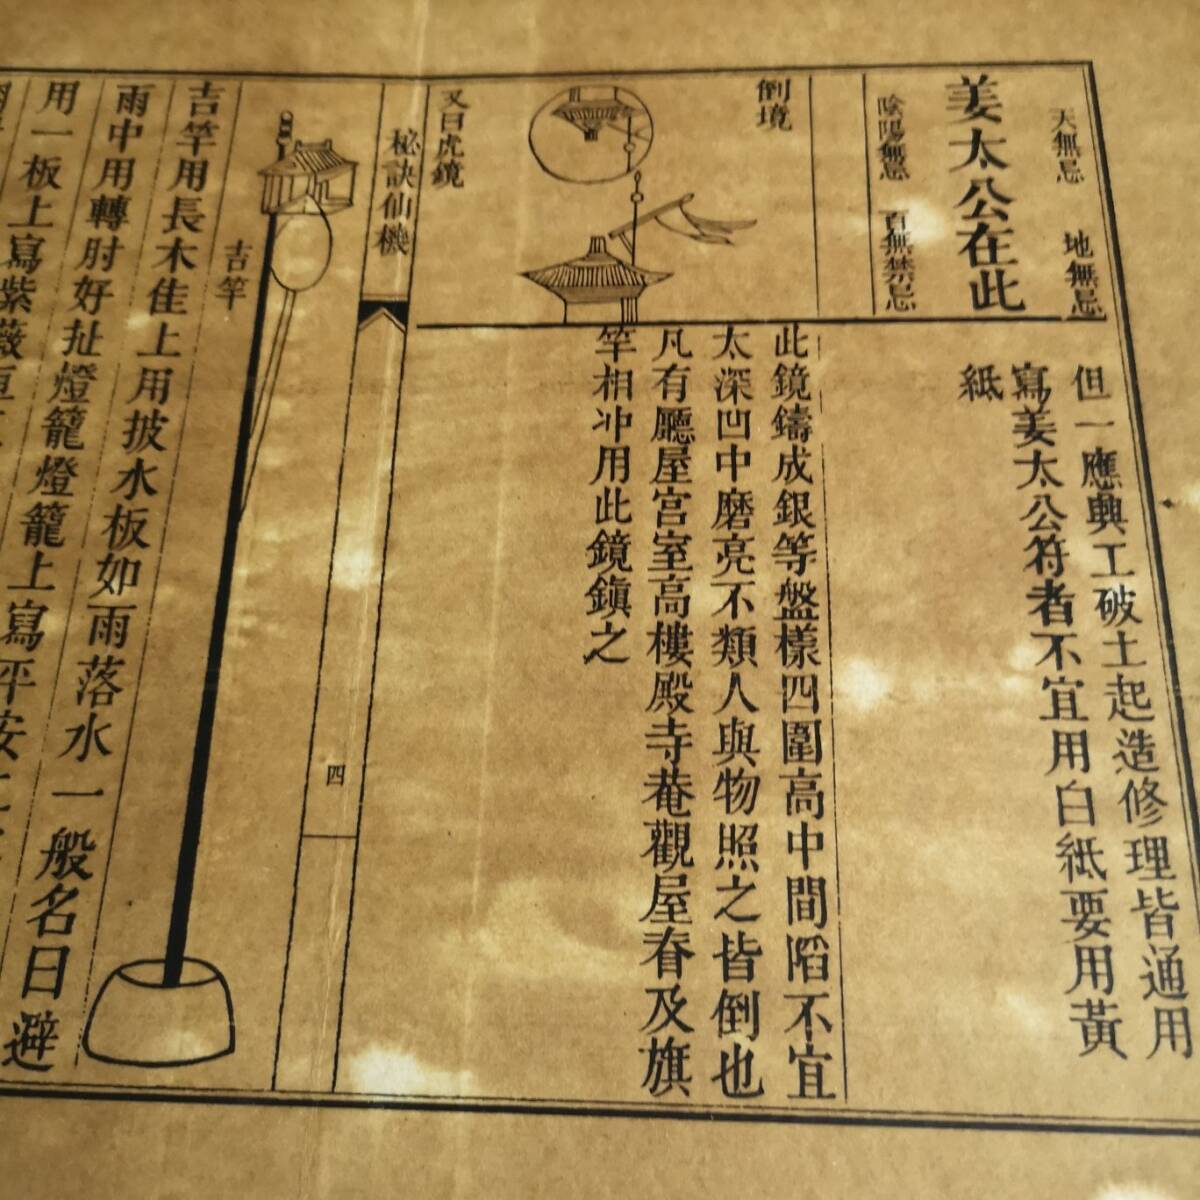 天無忌　地無忌
姜太公在此
陰陽無忌　百無禁忌
但一應興工破土起造修理皆通用
寫姜太公符者不宜用白紙要用黃
紙
倒境
又曰虎鏡
此鏡鑄成銀等盤樣四圍高中間陷不宜
太深凹中磨亮不類人與物照之皆倒也
凡有廳屋宮室高樓殿寺菴觀屋脊及旗
竿相冲用此鏡鎮之
秘訣仙機
四
吉竿
吉竿用長木佳上用披水板如雨落水一般名曰避
雨中用轉肘好扯燈籠燈籠上寫平安
用一板上寫紫薇